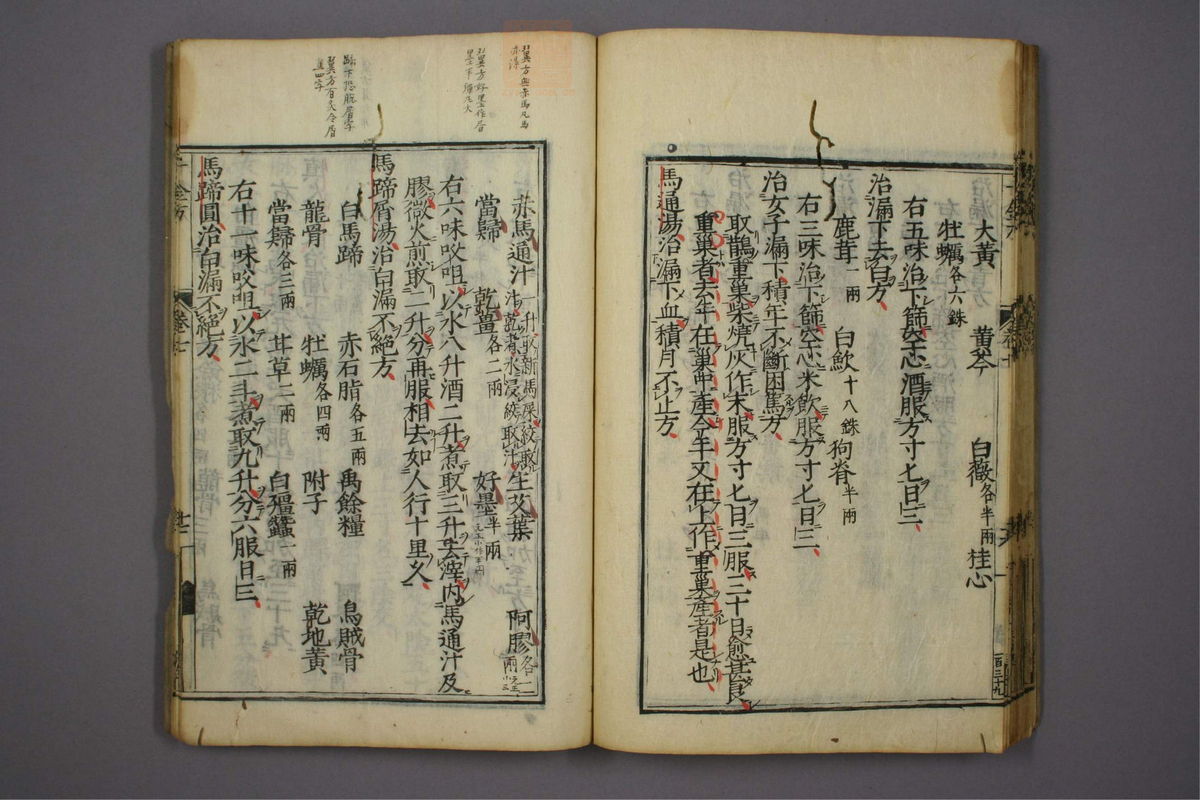 大黃 黃芩 白薇各半兩 桂心
牡蠣各六銖
右五味治下篩空心酒服方寸匕日三
治漏下去白方
鹿茸一兩 白歛十八銖 狗脊半兩
右三味治下篩空心米飲服方寸匕日三
治女子漏下積年不斷困篤方
取鵲重巢柴燒灰作末服方寸匕日三服三十日愈甚良
重巢者去年在巢中產今年又在上作重巢產者是也
馬通湯治漏下血積月不止方
百三十九
翼方無赤馬凡馬
亦得
赤馬通汁一升取新馬屎絞取汁乾者水浸絞取汁 生艾葉 阿膠各三兩
當歸 乾薑各二兩 好墨半兩
右六味㕮咀以水八升酒二升煮取三升去滓內馬通汁及
膠微火煎取二升分再服相去如人行十里久
馬蹄屑湯治白漏不絕方
白馬蹄 赤石脂各五兩 禹餘糧 烏賊骨
龍骨 牡蠣各四兩 附子 乾地黃
當歸各三兩 甘草二兩 白殭蠶一兩
右十一味㕮咀以水二斗煮取九升分六服日三
馬蹄圓治白漏不絕方